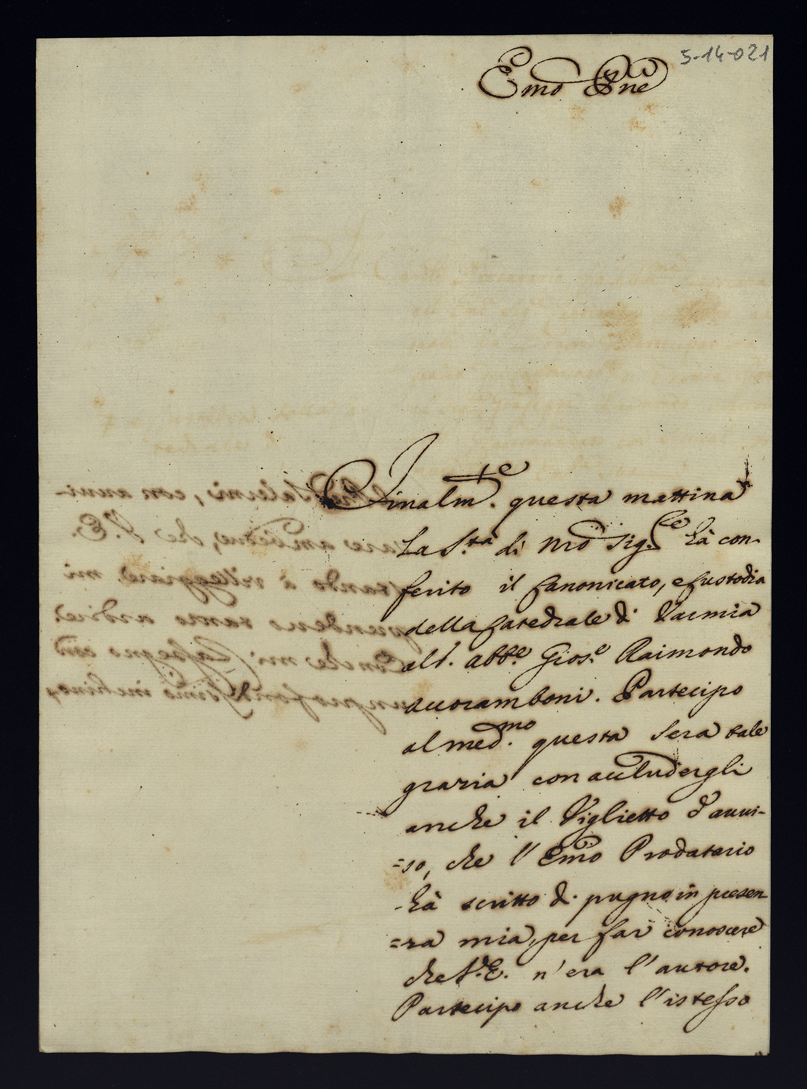 5-14-021
Emo Pne
Finalmte. questa mattina
la S.tà di Nro Sig.re hà con-
ferito il Canonicato, e Custodia
della Catedrale di
all'. Abbe. Gios.e Raimondo
Accoramboni. Partecipo
al med.mo questa sera tale
grazia con accludergli
anche il Viglietto d'avvi-
=so, che l'Emo Prodatario
hà scritto di pugno in presen
=za mia, per far conoscere
che V.E. n'era l'autore.
Partecipo anche l'istesso